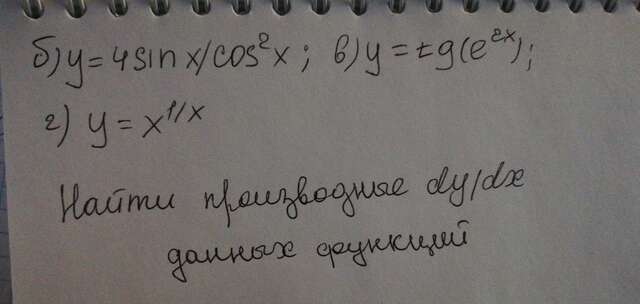 б) y = 4 sin x/cos²x; в) y = tg(e²ˣ);
г) y = x^1/x
Найти производные dy/dx
данных функций